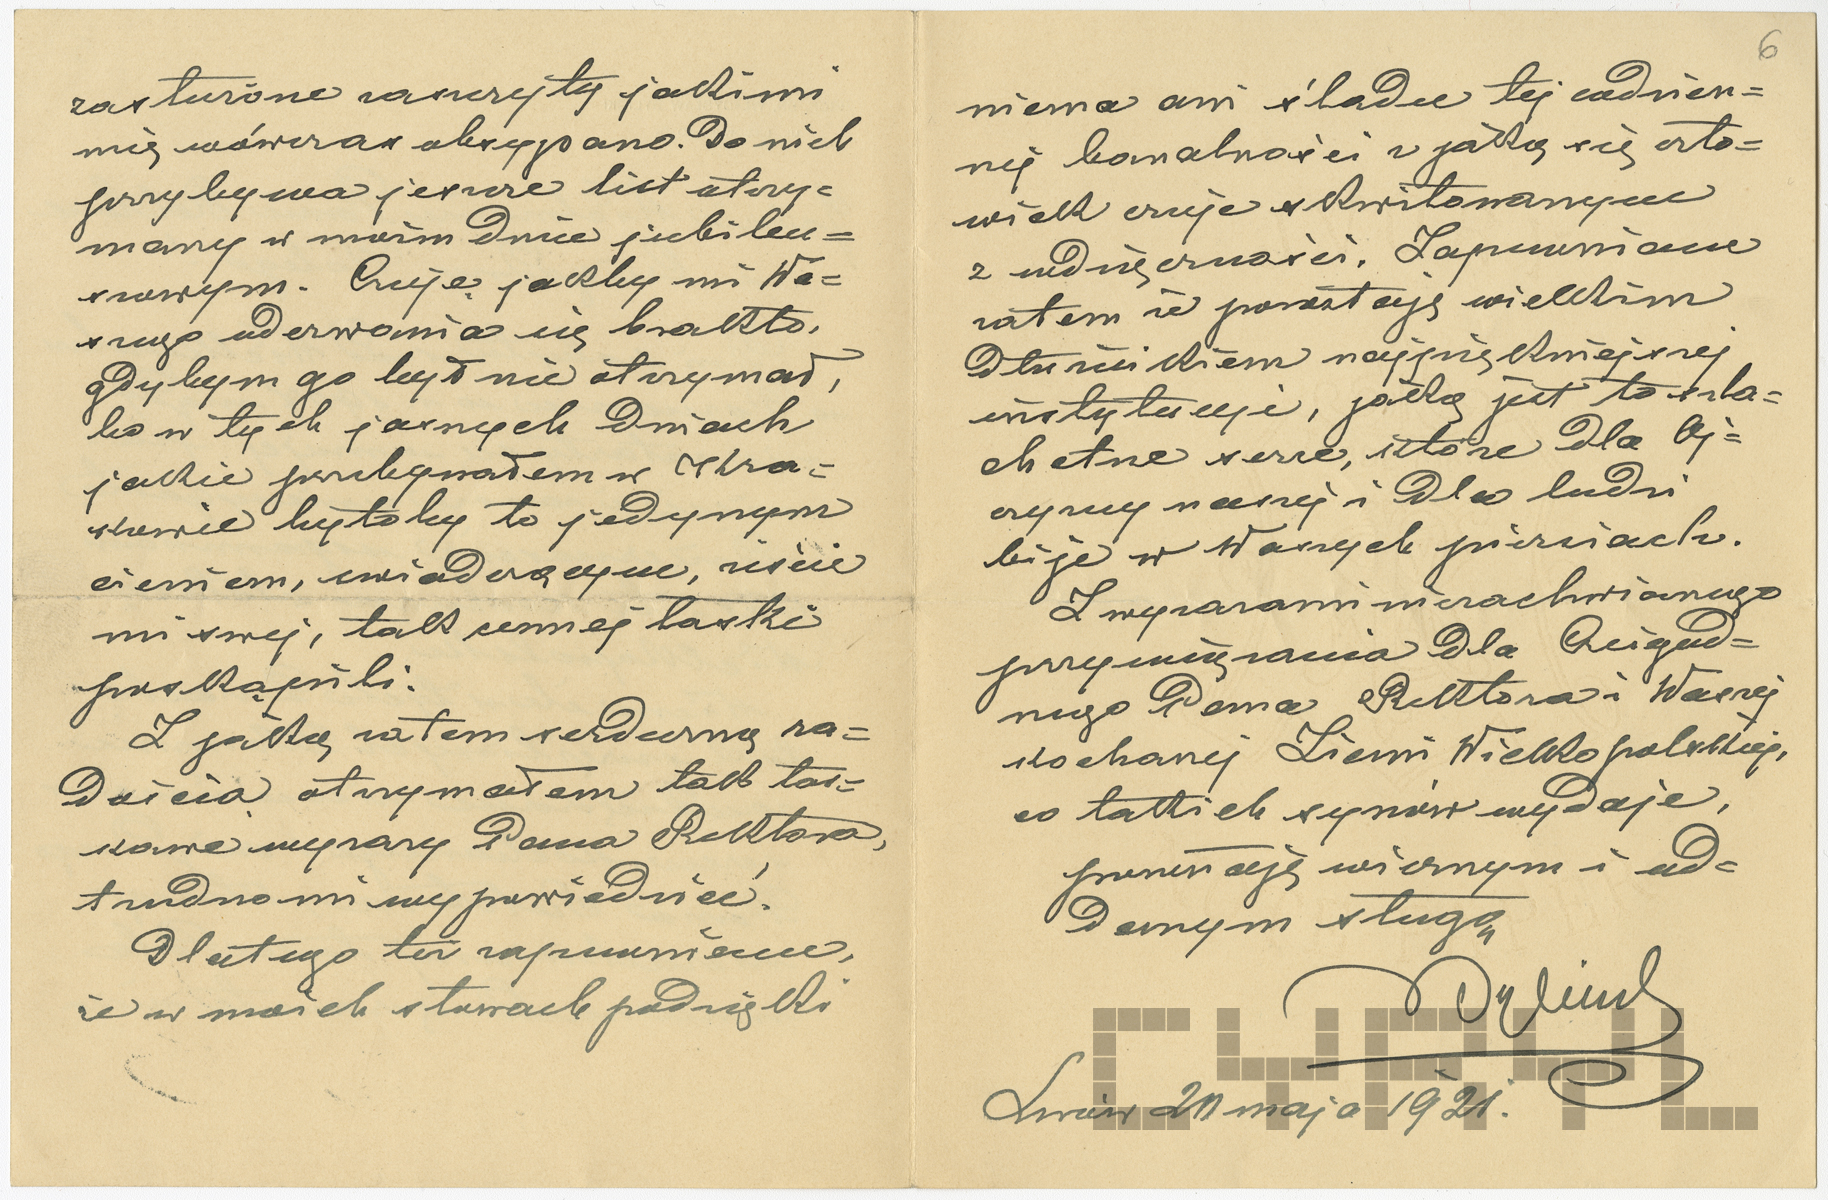 zasłużone zaszczyty jakimi
mię wówczas obsypano. Do nich
przybywa jeszcze list otrzy=
many w moim dniu jubileu=
szowym. Czuję, jakby mi Wa=
szego uderwania się brakło,
gdybym go był nie otrzymał,
bo w tych jasnych dniach
jakie przebywałem w Kra=
kowie byłoby to jedynym
cieniem, świadczącym, iście
mi swej, tak cennej łaski
poskąpili.
Z jaką zatem serdeczną ra=
dością otrzymałem tak łas=
kawe wyrazy Pana Rektora,
trudno mi wypowiedzieć.
Dlatego też zapewniam,
że w moich słowach podzięki
6
niema ani śladu tej codzien=
nej banalności z jaką się czło=
wiek czuje skwitowanym
z wdzięczności. Zapewniam
zatem że pozostaję wielkim
dłużnikiem najpiękniejszej
instytucji, jaką jest to szla=
chetne serce, które dla Oj=
czyzny naszej i dla ludzi
bije w Waszych piersiach.
Z wyrazami niezachwianego
przywiązania dla Czcigod=
nego Pana Rektora i Waszej
kochanej Ziemi Wielkopolskiej,
co takich synów wydaje,
pozostaję wiernym i od=
danym sługą
Lwów 20 maja 1921.
CYRYL